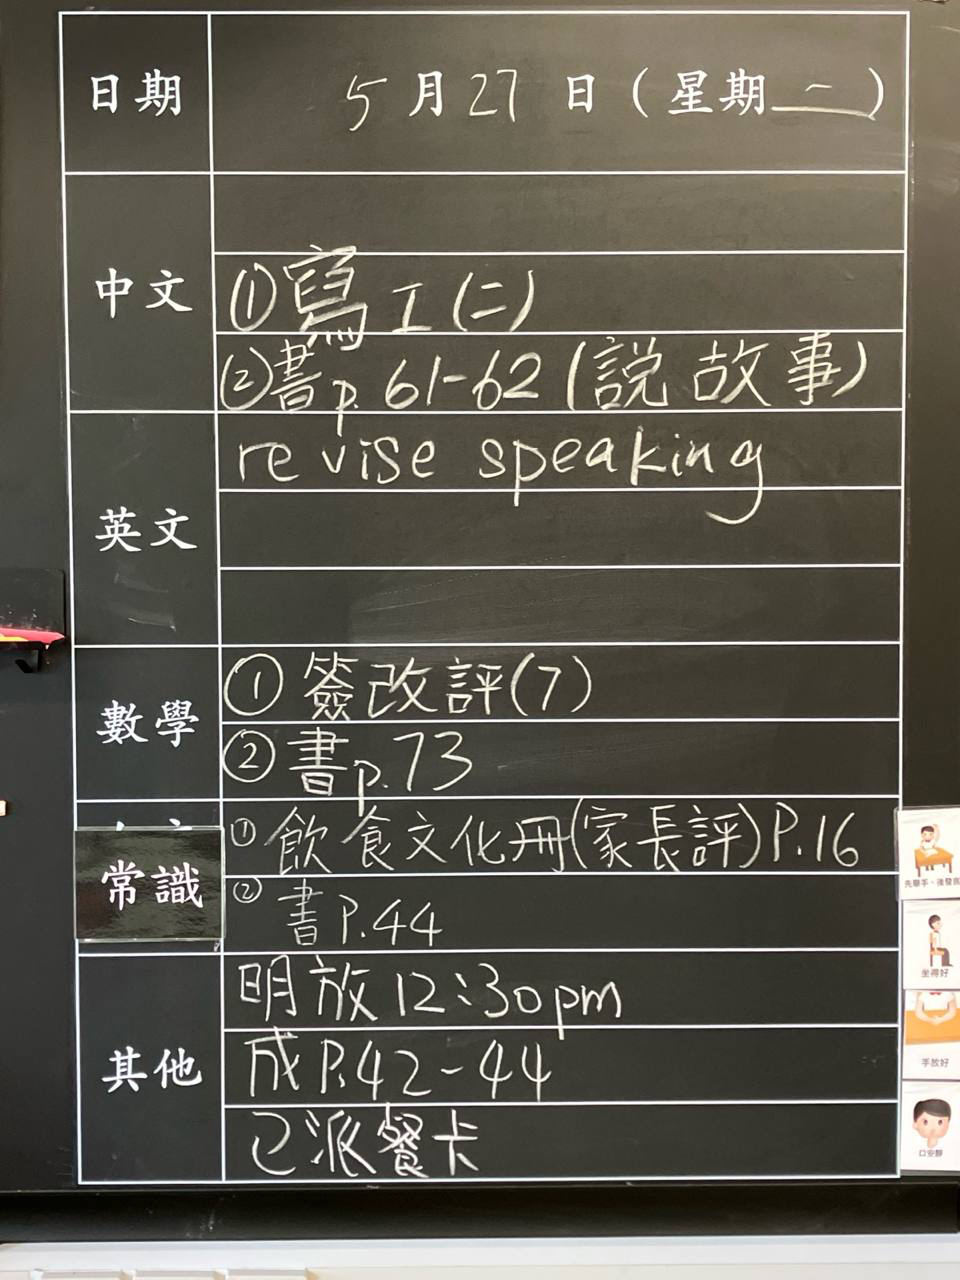 日期 5月27日(星期二)
中文
①寫工(二)
②書p.61-62(説故事)
英文
revise speaking
數學
①簽改評(7)
②書p.73
常識
①飲食文化冊(家長評)P.16
②書P.44
其他
明放12:30pm
成P.42-44
已派餐卡
先舉手、後發言
坐得好
手放好
口安靜